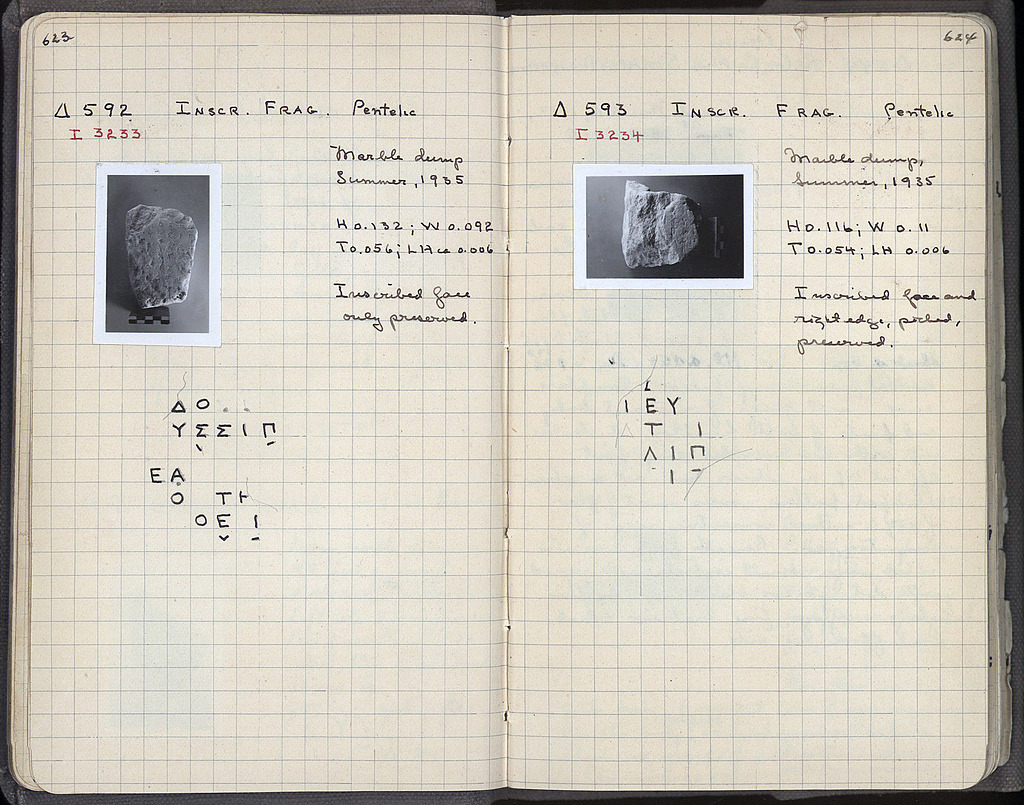 623
Δ 592 INSCR. FRAG. Pentelic
I 3233
Marble dump
Summer, 1935
H 0.132; W 0.092
T 0.056; LH ca 0.006
Inscribed face
only preserved.
Δ Ο . .
Υ Σ Σ Ι Π
Ε Α
Ο Τ Η
Ο Ε Ι
624
Δ 593 INSCR. FRAG. Pentelic
I 3234
Marble dump,
Summer, 1935
H 0.116; W 0.11
T 0.054; LH 0.006
Inscribed face and
right edge, picked,
preserved.
Ι Ε Υ
Τ Ι
Λ Ι Π
Ι